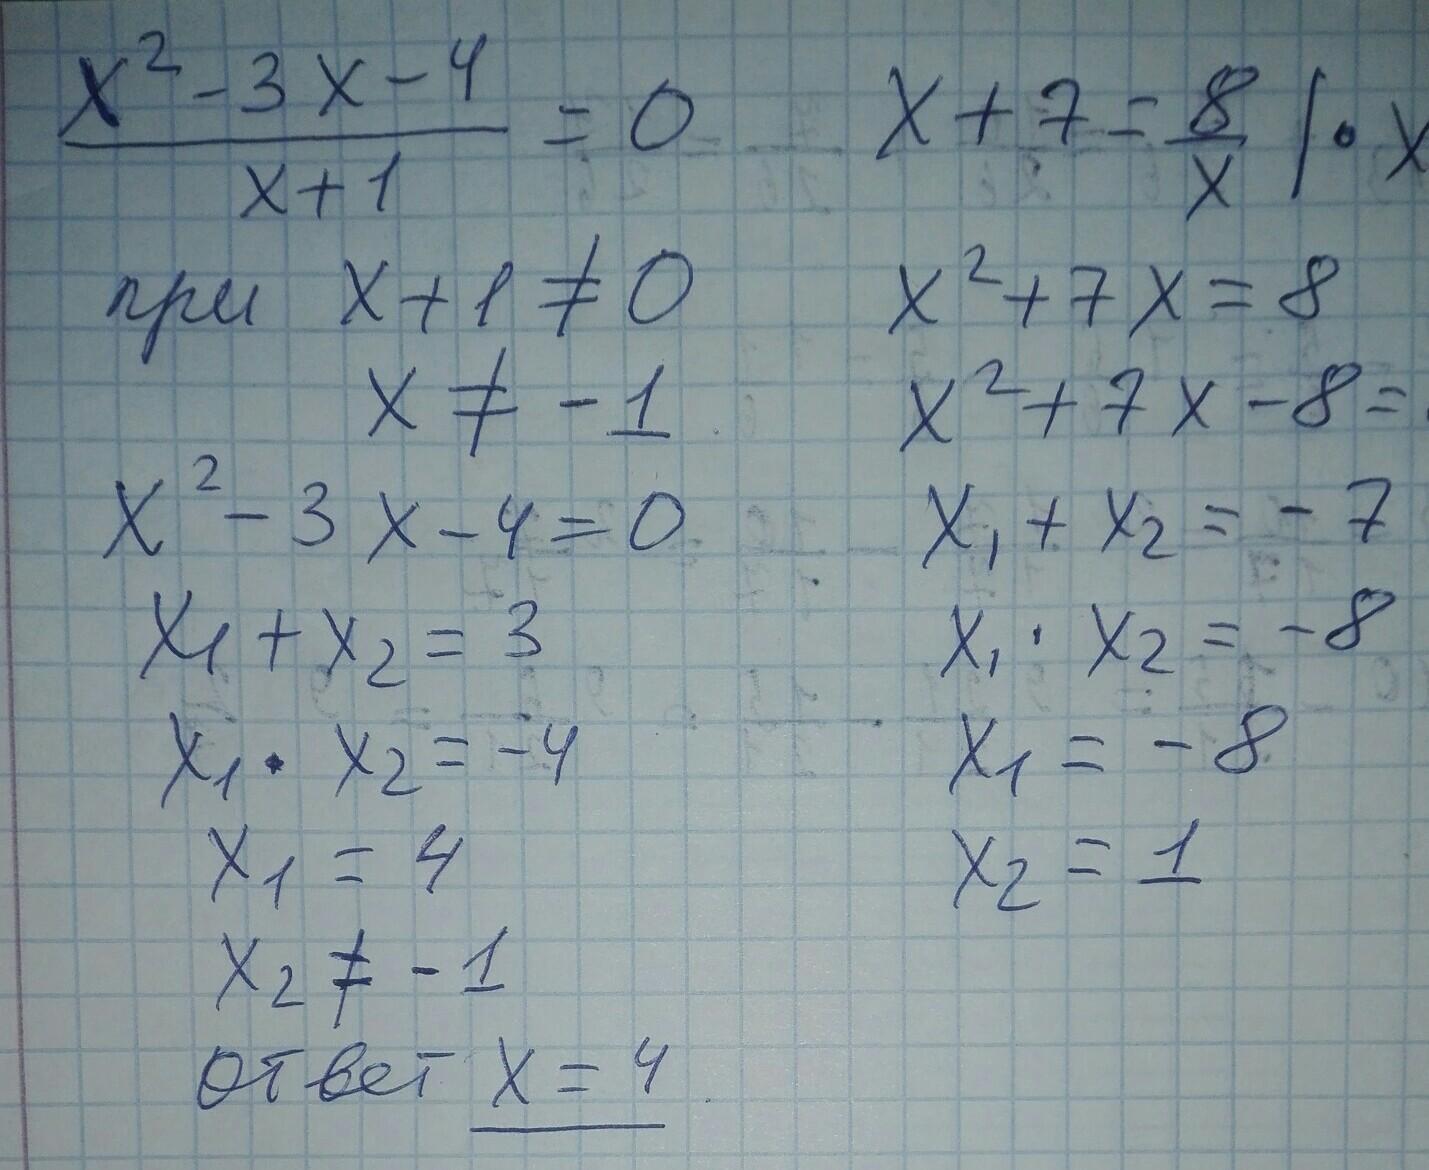 x² - 3x - 4 / x + 1 = 0
при x + 1 ≠ 0
x ≠ - 1
x² - 3x - 4 = 0
x₁ + x₂ = 3
x₁ · x₂ = -4
x₁ = 4
x₂ ≠ - 1
ответ x = 4
x + 7 = 8/x | · x
x² + 7x = 8
x² + 7x - 8 =
x₁ + x₂ = - 7
x₁ · x₂ = - 8
x₁ = - 8
x₂ = 1